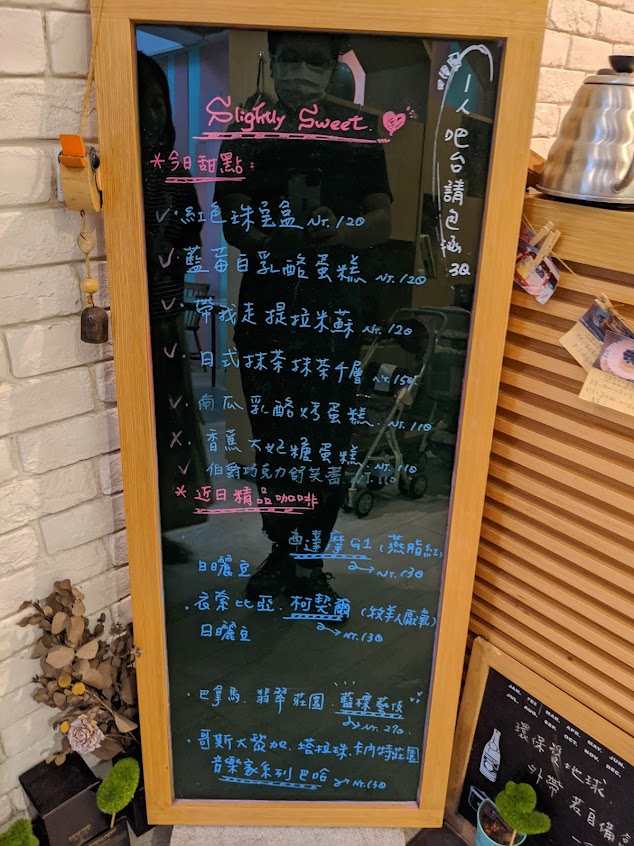 Slightly Sweet.
*今日甜點:
✓·紅色珠寶盒 NT.120
✓·藍莓白乳酪蛋糕 NT.120
✓·帶我走提拉米蘇 NT.120
✓·日式抹茶抹茶千層 NT.150
✓·南瓜乳酪烤蛋糕 NT.110
✗·香蕉太妃糖蛋糕 NT.110
✓伯爵巧克力舒芙蕾 NT.110
*近日精品咖啡
西達摩 G1 (燕脂紅)
日曬豆 NT.130
·衣索比亞.柯契爾 (牧羊人厭氧)
日曬豆 NT.130
·巴拿馬.翡翠莊園.藍標藝伎
NT.270
·哥斯大黎加.塔拉珠.卡內特莊園
音樂家系列巴哈 NT.130
一人吧台請包涵
JAN. FEB. MAR. APR. MAY. JUN.
JUL. AUG. SEP. OCT. NOV. DEC.
環保愛地球
外帶若自備